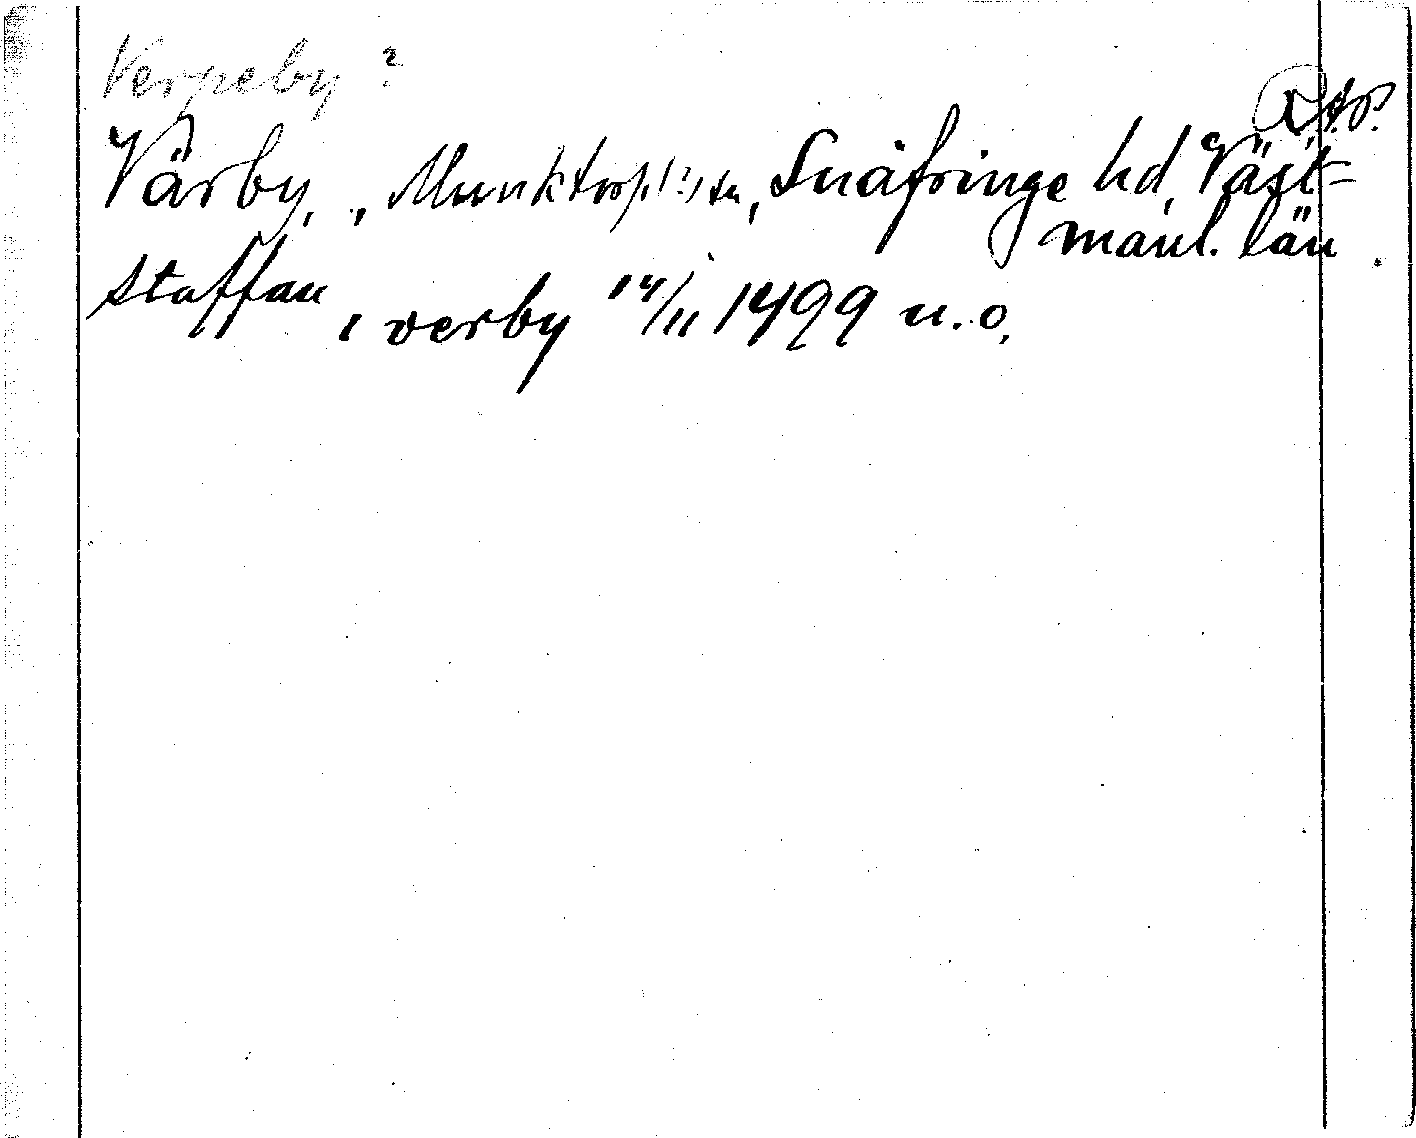 Verpeby ?
R.A.P.
Värby, , Munktorp (?) sn, Snäfringe hd, Väst-
manl. län.
Staffan i verby 14/11 1499 u. o.